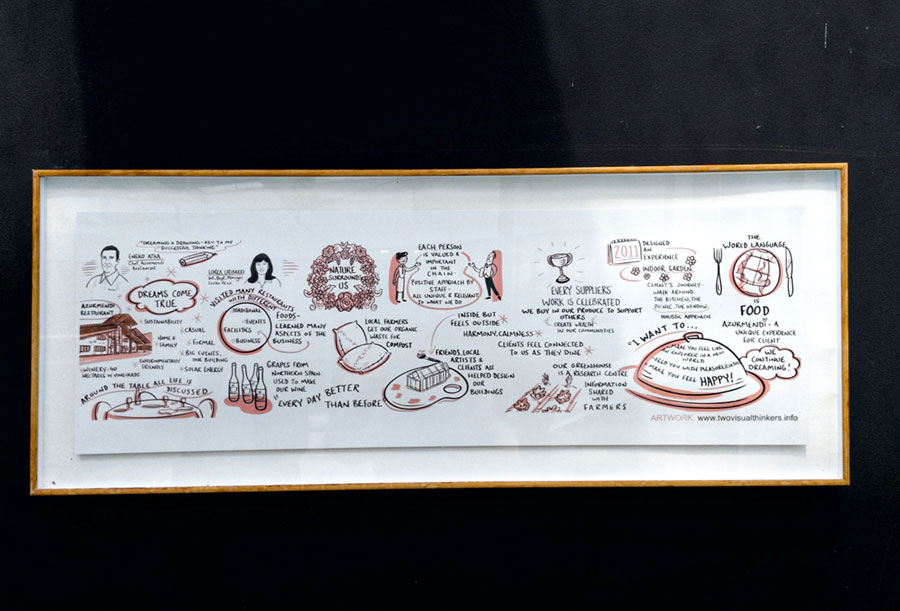 "DREAMING & DRAWING - KEY TO MY
SUCCESSFUL THINKING"
ENEKO ATXA
Chef Azurmendi
Restaurant
DREAMS COME
TRUE
AZURMENDI
RESTAURANT
SUSTAINABILITY
HOME &
FAMILY
ENVIRONMENTALLY
FRIENDLY
WINERY-40
HECTARES OF VINEYARDS
AROUND THE TABLE ALL LIFE IS
DISCUSSED
VISITED MANY RESTAURANTS
WITH DIFFERENT
TRADITIONAL
EVENTS
FACILITIES
BUSINESS
FOODS-
LEARNED MANY
ASPECTS OF THE
BUSINESS
CASUAL
FORMAL
BIG EVENTS,
OUR BUILDING
SOLAR ENERGY
GRAPES FROM
NORTHERN SPAIN
USED TO MAKE
OUR WINE
"EVERY DAY BETTER
THAN BEFORE
NATURE
SURROUNDS
US
LOCAL FARMERS
GET OUR ORGANIC
WASTE FOR
COMPOST
EACH PERSON
IS VALUED &
IMPORTANT
IN THE
CHAIN
POSITIVE APPROACH BY
STAFF-
ALL UNIQUE & RELEVANT
TO WHAT WE DO
INSIDE BUT
FEELS OUTSIDE
HARMONY, CALMNESS
CLIENTS FEEL CONNECTED
TO US AS THEY DINE
FRIENDS, LOCAL
ARTISTS &
CLIENTS ALL
HELPED DESIGN
OUR
BUILDINGS
EVERY SUPPLIERS'
WORK IS CELEBRATED
WE BUY IN OUR PRODUCE TO SUPPORT
OTHERS
CREATE WEALTH
IN OUR COMMUNITIES
OUR GREENHOUSE
IS A RESEARCH CENTRE
INFORMATION
SHARED
WITH
FARMERS
2011
DESIGNED
AN
EXPERIENCE
INDOOR GARDEN
CLIENT'S JOURNEY-
WALK AROUND
THE KITCHEN, THE
PICNIC, THE WINDOW,
HOLISTIC APPROACH
"I WANT TO...
MAKE YOU FEEL LIKE
AN EXPLORER IN A NEW
WORLD
FEED YOU WITH PLEASURE
MAKE YOU FEEL
HAPPY!
THE
WORLD LANGUAGE
IS
FOOD
AZURMENDI - A
UNIQUE EXPERIENCE
FOR CLIENT
WE
CONTINUE
DREAMING!
ARTWORK: www.twovisualthinkers.info